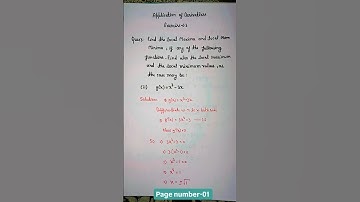 Application of Derivatives
Exercise 6.3
Ques: Find the Local Maxima and Local Mini
Minima, if any of the following
functions. Find also the local maximum
and the local minimum values, as
the case may be:
(ii) g(x) = x³ - 3x
Solution: g(x) = x³ - 3x
Differentiate w.r.to x both side
g'(x) = 3x² - 3
Now g'(x) = 0
So 3x² - 3 = 0
3(x² - 1) = 0
x² - 1 = 0
x² = 1
x = ±√1
Page number-01